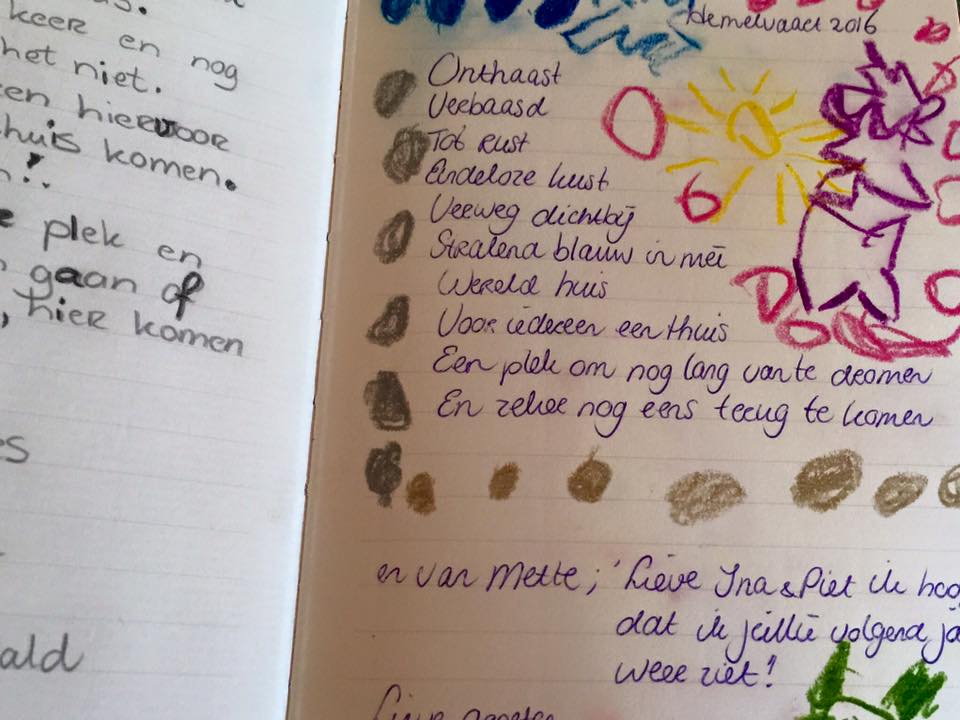 keer en nog
het niet.
hiervoor
huis komen.
plek en
gaan of
, hier komen
Hemelvaart 2016
Onthaast
Verbaasd
Tot rust
Eindeloze kust
Verweg dichtbij
Stralend blauw in mei
Wereld huis
Voor iedereen een thuis
Een plek om nog lang van te dromen
En zeker nog eens terug te komen
en van Mette; 'Lieve Ina & Piet ik hoo
dat ik jullie volgend ja
weer ziet!